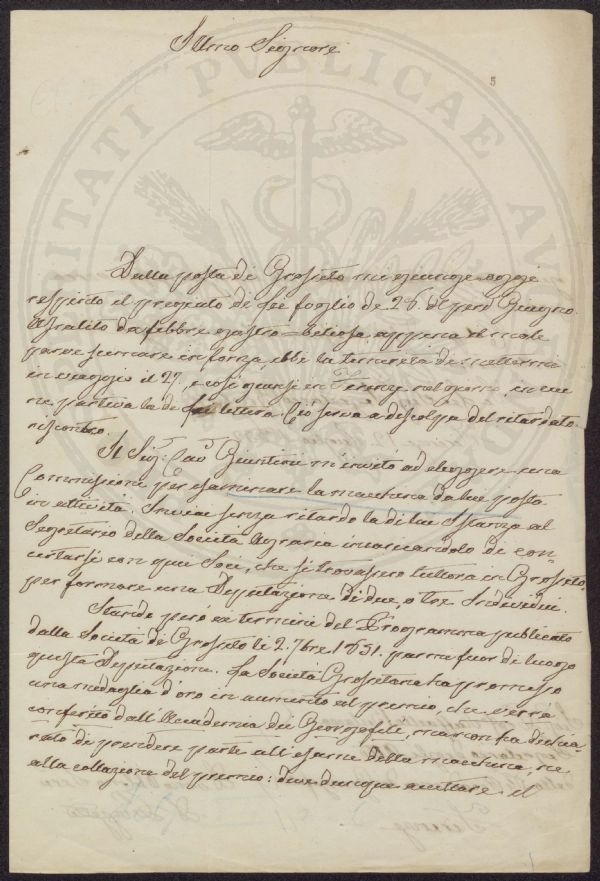 Illmo Signore
5
Dalla posta di Grosseto mi giunge oggi
respinto il pregiato di Lei foglio de 26. di però Giugno.
Assalito da febbre gastro-biliosa, appena il male
parve scemare in forza, ebbi la temerità di mettermi
in viaggio il 27, e così giunsi in Firenze nel giorno, in cui
ne partiva la di lettera. Ciò serva a discolpa del ritardato
riscontro.
Il Sig. Cav. Giuntini m'invitò ad eleggere una
Commissione per esaminare la macchina da lui posta
in attività. Inviai senza ritardo la di lui Istanza al
Segretario della Società Agraria incaricandolo di con-
certarsi con quei Soci, che si trovassero tuttora in Grosseto,
per formare una Deputazione di due, o tre Individui.
Stando però ai termini del Programma publicato
dalla Società di Grosseto li 2. 7bre 1851. parmi fuor di luogo
questa Deputazione. La Società Grossetana ha promesso
una medaglia d'oro in aumento al premio, che verrà
conferito dall'Accademia dei Georgofili, ma non ha dichia-
rato di prendere parte all'esame della macchina, nè
alla collazione del premio: deve dunque il
Firenze